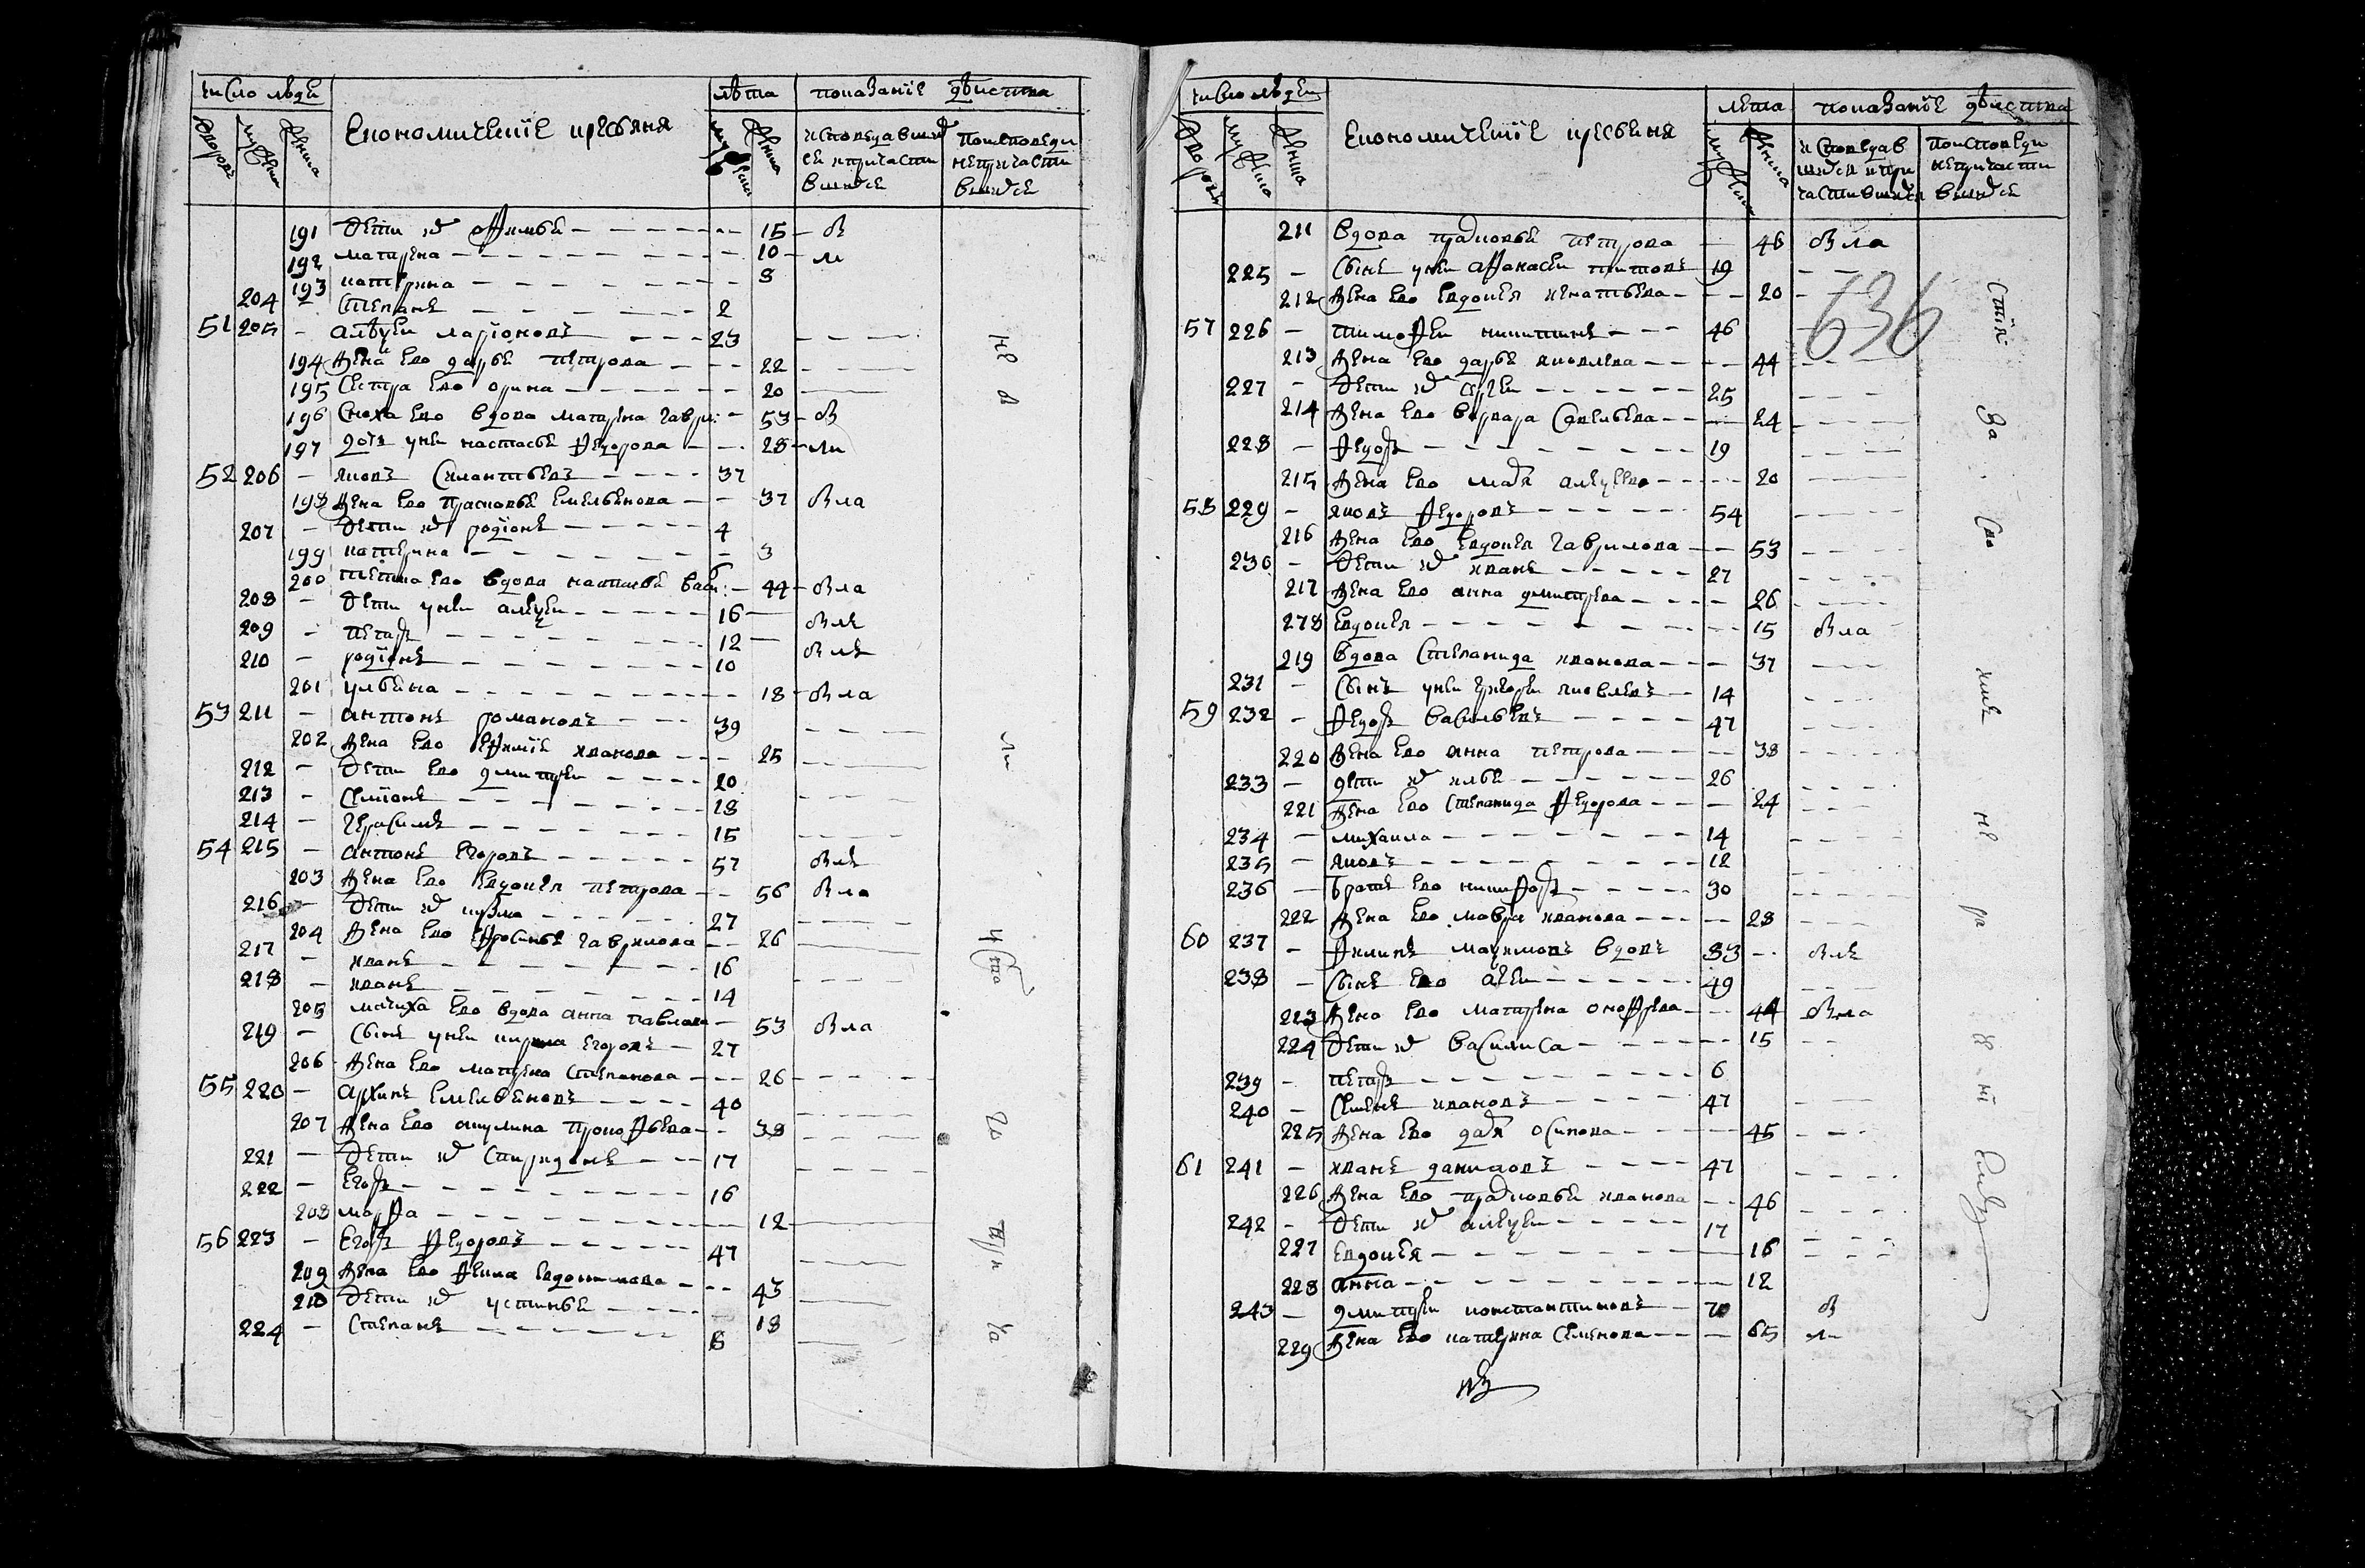 число людей
лѣта
показанїе двиства
дворовъ
мужеска
женска
Економическїе кресьяня
мужеска
женска
исповедавши
ся и причасти
вшиеся
поисповеди
непричасти
вшиеся
191 Дети их Афимья 15 в
192 матрена 10 ли
193 катерина 8
204 Степанъ 2
51 205 алеѯѣи ларїоновъ 23
194 жена ево дарья петрова 22
195 Сестра ево орина 20
196 Сноха ево вдова матрена гаври: 53 в
197 дочь унеи настасья федорова 28 ли
52 206 яковъ Силантьевъ 37
198 жена ево прасковья Емельянова 37 вла
207 Дети их родїонъ 4
199 катерина 3
200 тетка ево вдова настасья васи: 44 вла
208 Дети унеи алеѯеи 16 влъ
209 петръ 12 влъ
210 родїонъ 10
201 ульяна 18 вла
53 211 антонъ романовъ 39
202 жена ево Ефимїя иванова 25
212 Дети ево дмитреи 20
213 Семїонъ 18
214 герасимъ 15
54 215 антонъ Егоровъ 57 влъ
203 жена ево Евдокея петрова 56 вла
216 Дети их кузма 27
204 жена ево Ефросинья гаврилова 26
217 иванъ 16
218 иванъ 14
205 мачиха ево вдова анна павлова 53 вла
219 Сынъ унеи кирила Егоровъ 27
206 жена ево матрена Степанова 26
55 220 архипъ Емельяновъ 40
207 жена ево акулина прокофьева 38
221 Дети их Спиридонъ 17
222 Егоръ 16
208 марфа 12
56 223 Егоръ федоровъ 47
209 жена ево фекла Евдокимова 43
210 Дети их устинья 18
224 Степанъ 8
число людеи
лета
показанїе двиства
дворовъ
мужеска
женска
Економическїе кресьяня
мужеска
женска
исповедав
шиеся и при
частившиеся
поисповеди
непричасти
вшиеся
636
211 вдова прасковья петрова 46 вла
225 Сынъ унеи афанасеи титовъ 19
212 жена ево Евдокея игнатьева 20
57 226 тимофеи никитинъ 46
213 жена ево дарья яковлева 44
227 Дети их Сергеи 25
214 жена ево варвара Савельева 24
228 федоръ 19
215 жена ево марья алеѯеева 20
58 229 яковъ федоровъ 54
216 жена ево Евдокея гаврилова 53
230 Дети их иванъ 27
217 жена ево анна дмитрева 26
278 Евдокея 15 вла
219 вдова Степанида иванова 37
231 Сынъ унеи григореи яковлевъ 14
59 232 федоръ васильевъ 47
220 жена ево анна петрова 38
233 дети их илья 26
221 жена ево Степанида федорова 24
234 михаила 14
235 яковъ 12
236 братъ ево никифоръ 30
222 жена ево мавра иванова 28
60 237 филипъ маѯимовъ вдовъ 83 влъ
238 Сынъ ево авеи 49
223 жена ево матрена онофрева 44 вла
224 Дети их василиса 15
239 петръ 6
240 Семенъ ивановъ 47
225 жена ево дарья осипова 45
61 241 иванъ даниловъ 47
226 жена ево прасковья иванова 46
242 Дети их алеѯеи 17
227 Евдокея 16
228 анна 12
243 дмитреи константиновъ 70 в
229 жена ево катерина Семенова 65 ли